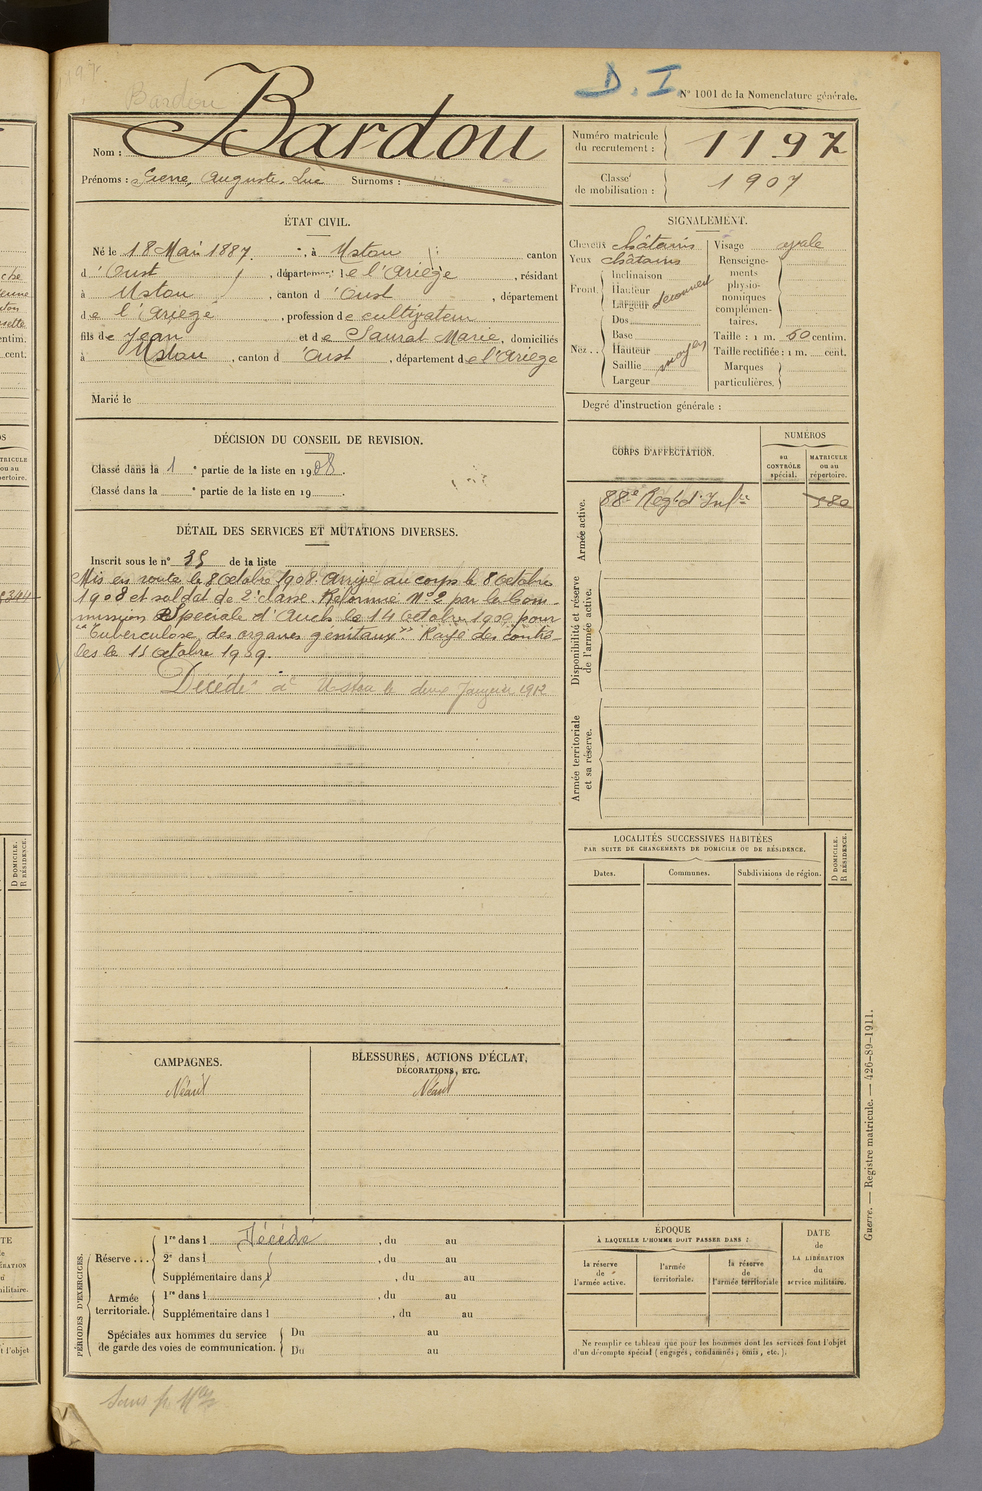 Bardou
D. I.
N° 1001 de la Nomenclature générale.
Nom : Bardou
Prénoms : Pierre, Auguste, Luc Surnoms :
Numéro matricule du recrutement : 1197
Classe de mobilisation : 1907
ÉTAT CIVIL.
Né le 18 Mai 1887, à Ustou canton
d'Oust, département de l'Ariège, résidant
à Ustou, canton d'Oust, département
de l'Ariège, profession de cultivateur
fils de Jean et de Saurat Marie, domiciliés
à Ustou, canton d'Oust, département de l'Ariège
Marié le
SIGNALEMENT.
Cheveux châtains
Yeux châtains
Front. Inclinaison
Hauteur
Largeur
Nez .. Dos
Base
Hauteur moyen
Saillie
Largeur
Visage ovale
Renseignements physionomiques complémentaires.
Taille : 1 m. 60 centim.
Taille rectifiée : 1 m. cent.
Marques particulières.
Degré d'instruction générale :
DÉCISION DU CONSEIL DE REVISION.
Classé dans la 1e partie de la liste en 1908.
Classé dans la e partie de la liste en 19 .
DÉTAIL DES SERVICES ET MUTATIONS DIVERSES.
Inscrit sous le n° 35 de la liste
Mis en route le 8 Octobre 1908. Arrivé au corps le 8 Octobre
1908 et soldat de 2e classe. Réformé N° 2 par la Com-
mission Spéciale d'Auch le 14 Octobre 1909 pour
"Tuberculose des organes génitaux" Rayé des contrô-
les le 15 Octobre 1909.
Décédé à Ustou le deux Janvier 1912
CORPS D'AFFECTATION.
NUMÉROS
au CONTRÔLE spécial.
MATRICULE ou au répertoire.
Armée active.
88e Régt d'Infie 580
Disponibilité et réserve de l'armée active.
Armée territoriale et sa réserve.
LOCALITÉS SUCCESSIVES HABITÉES
PAR SUITE DE CHANGEMENTS DE DOMICILE OU DE RÉSIDENCE.
Dates. Communes. Subdivisions de région. D DOMICILE. R RÉSIDENCE.
CAMPAGNES.
Néant
BLESSURES, ACTIONS D'ÉCLAT,
DÉCORATIONS, ETC.
Néant
PÉRIODES D'EXERCICES.
Réserve ... 1re dans l Décédé, du au
2e dans l , du au
Supplémentaire dans l , du au
Armée territoriale. 1re dans l , du au
Supplémentaire dans l , du au
Spéciales aux hommes du service de garde des voies de communication. Du au
Du au
ÉPOQUE
À LAQUELLE L'HOMME DOIT PASSER DANS :
la réserve de l'armée active.
l'armée territoriale.
la réserve de l'armée territoriale
DATE de LA LIBÉRATION du service militaire.
Ne remplir ce tableau que pour les hommes dont les services font l'objet
d'un décompte spécial (engagés, condamnés, omis, etc.).
Guerre. — Registre matricule. — 426-89-1911.